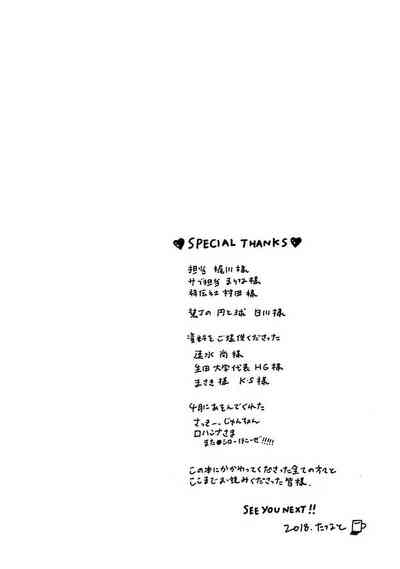 SPECIAL THANKS
担当 梶川様
サブ担当 様
村田様
円と球 日川様
資料をご提供くださった
速水 尚 様
生田 大学代表 HG様
まさき様 K・S様
4月にあそんでくれた
さっきー、じゅんちょん
ロハンナさま
また
この本にかかわってくださった全ての方々と
ここまでお読みくださった皆様。
SEE YOU NEXT!!
2018.